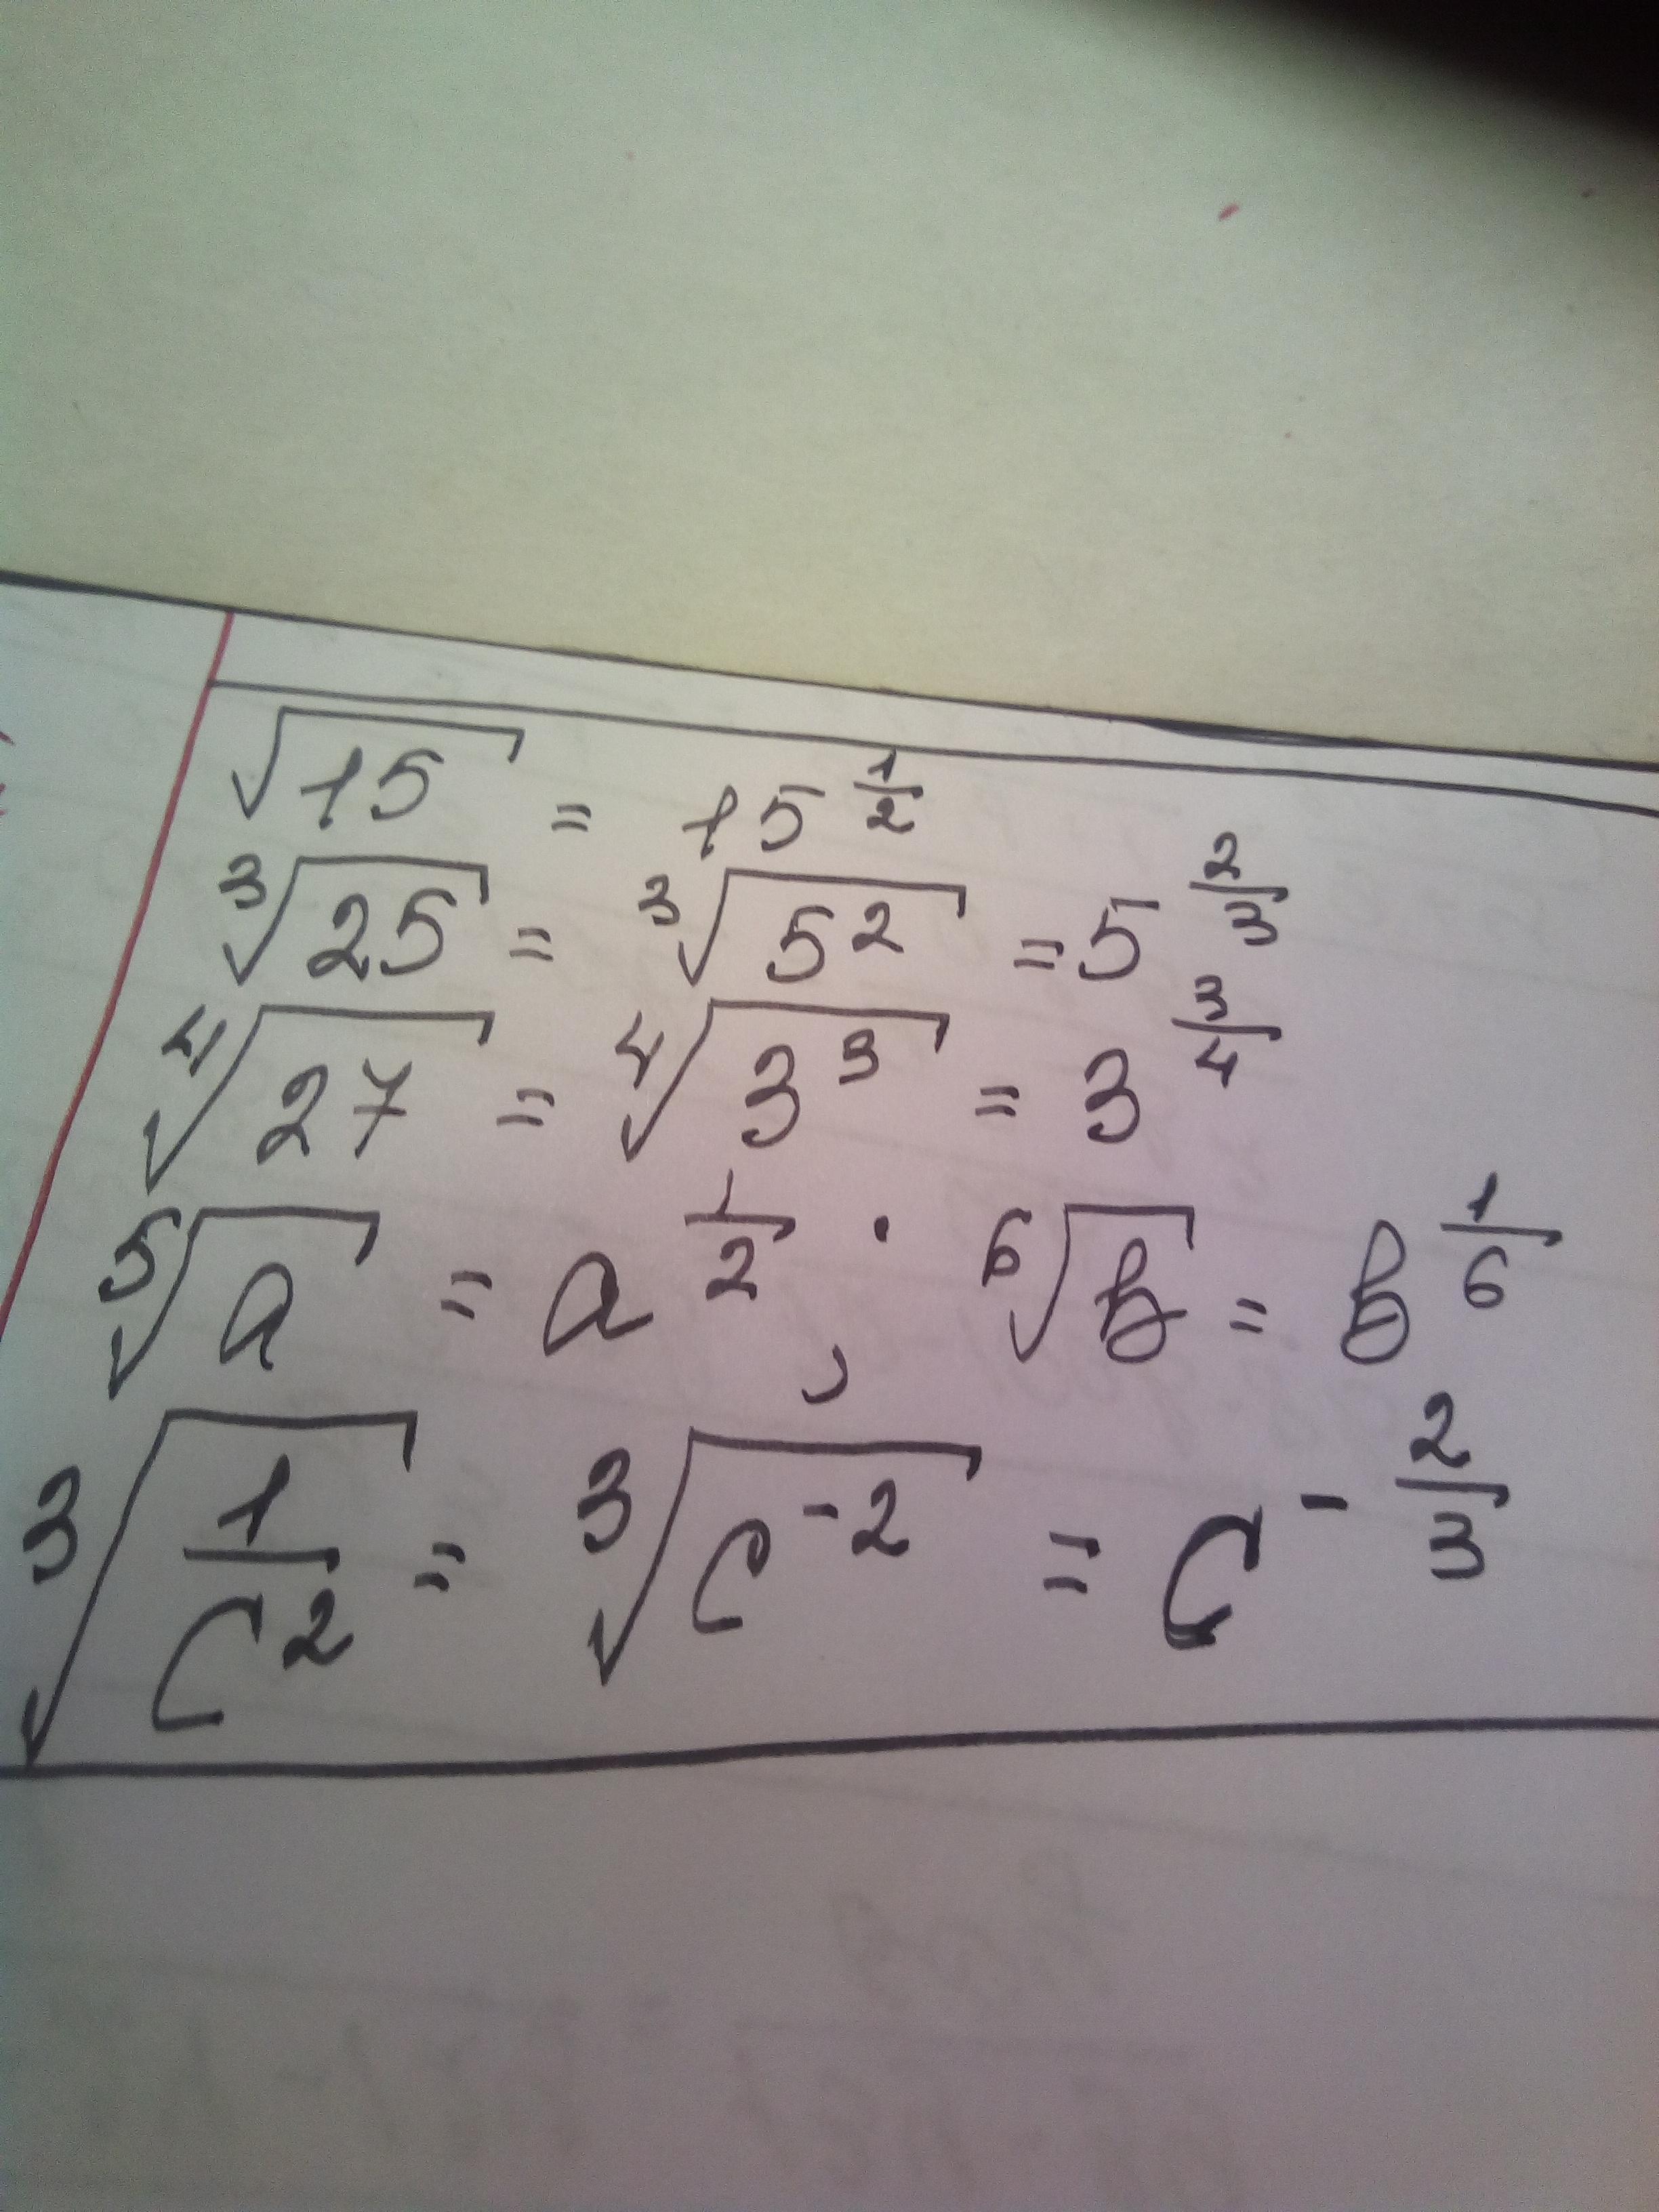 √15 = 15^(1/2)
∛25 = ∛(5^2) = 5^(2/3)
∜27 = ∜(3^3) = 3^(3/4)
⁵√a = a^(1/2) ; ⁶√b = b^(1/6)
∛(1/c^2) = ∛(c^(-2)) = c^(-2/3)